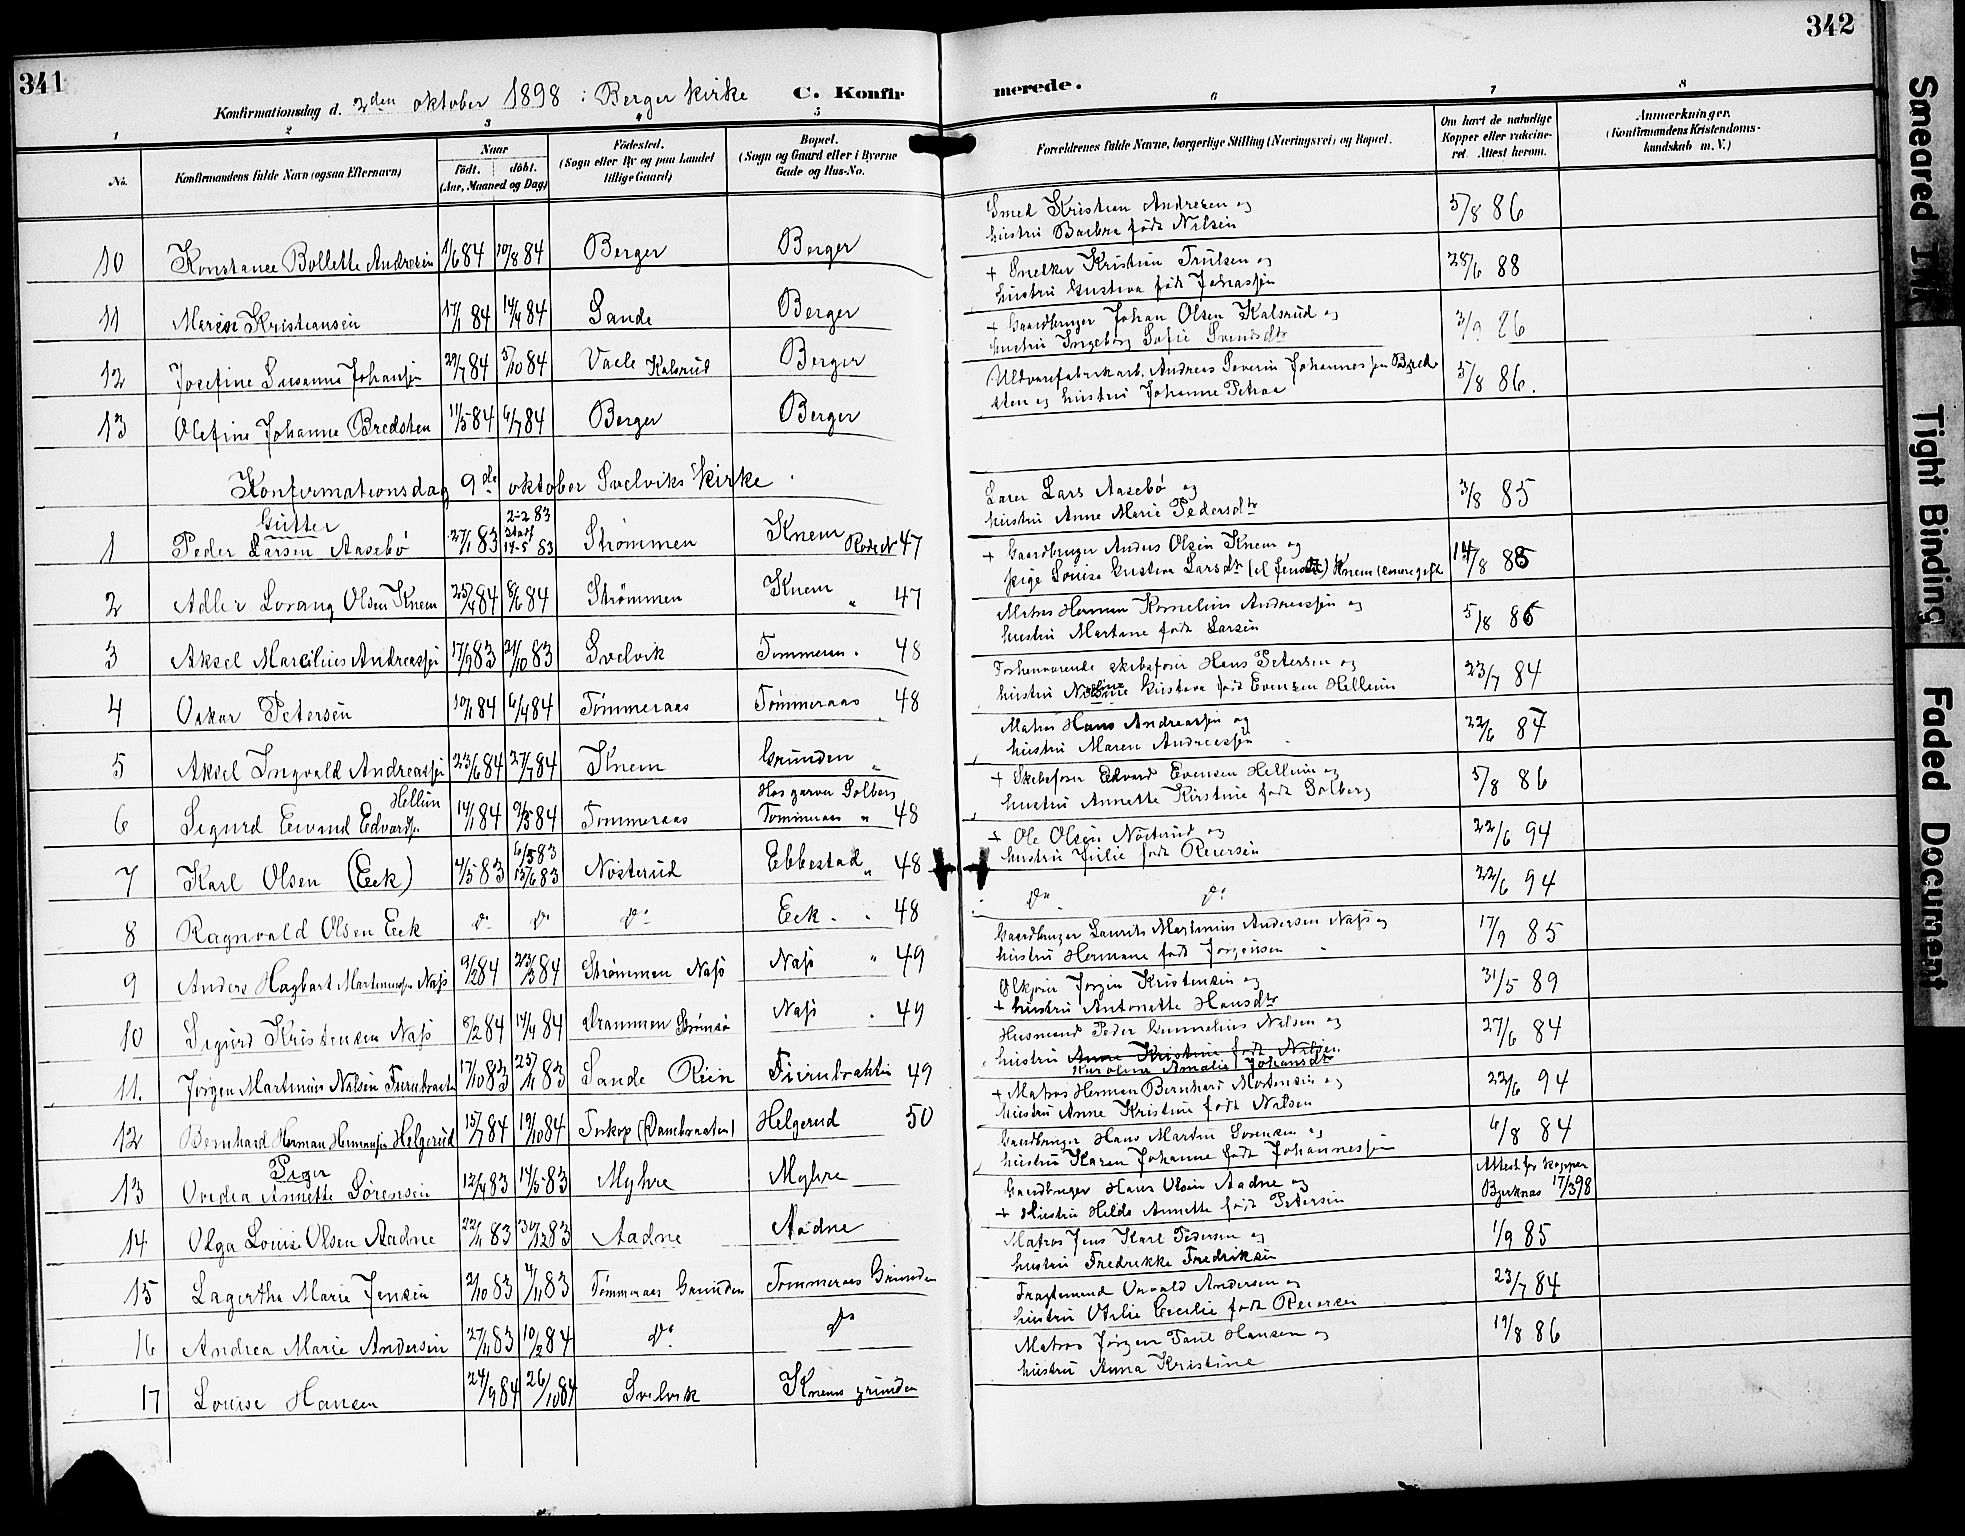 341
Konfirmationsdag d. 2den oktober 1898 i Berger kirke
C. Konfir
1 2 3 4 5
No.
Konfirmandens fulde Navn (ogsaa Efternavn)
Naar
födt. döbt.
(Aar, Maaned og Dag)
Födested.
(Sogn eller By og paa Landet
tillige Gaard)
Bopæl.
(Sogn og Gaard eller i Byerne
Gade og Hus-No.
10 Konstance Bollette Andresen 1/6 84 10/8 84 Berger Berger
11 Marisi Kristiansen 17/1 84 14/4 84 Sande Berger
12 Josefine Susanne Johansen 29/7 84 5/10 84 Vaele Kalsrud Berger
13 Olefine Johanne Bredsten 11/5 84 6/7 84 Berger Berger
Konfirmationsdag 9de oktober Svelviks kirke
Gutter
1 Peder Larsen Aasebö 27/1 83 2-2 83 stadf 14-5 83 Strømmen Knem Rode N 47
2 Adler Lorang Olsen Knem 25/4 84 8/6 84 Strømmen Knem " 47
3 Aksel Marcilius Andreassen 17/9 83 21/10 83 Svelvik Tømmeraas 48
4 Oskar Petersen 10/1 84 6/4 84 Tømmeraas Tømmeraas 48
5 Aksel Ingvald Andreassen 23/6 84 27/7 84 Knem Grunden "
6 Sigurd Eivind Edvardsen Hellum 14/1 84 9/3 84 Tømmeraas Hos garver Solberg Tømmeraas " 48
7 Karl Olsen (Eek) 4/5 83 6/5 83 13/6 83 Nösterud Ebbestad " 48
8 Ragnvald Olsen Eek do do do Eek 48
9 Anders Hagbart Martinussen Nasö 9/2 84 23/3 84 Strømmen Nasö Nasö " 49
10 Sigurd Kristensen Nasö 8/2 84 14/4 84 Drammen Strömsö Nasö 49
11. Jörgen Martinius Nilsen Furubraaten 17/10 83 25/11 83 Sande Rein Furubraaten 49
12 Bernhard Herman Hermansen Helgerud 15/7 84 19/10 84 Skoger (Dambraaten) Helgerud 50
Piger
13 Ovidia Annette Sörensen 12/4 83 14/5 83 Myhre Myhre
14 Olga Louise Olsen Aadne 22/11 83 30/12 83 Aadne Aadne
15 Lagertha Marie Jensen 2/10 83 4/11 83 Tømmeraas Grunden Tømmeraas Grunden
16 Andrea Marie Andersen 27/11 83 10/2 84 do do
17 Louise Hansen 24/9 84 26/10 84 Svelvik Knems grunden
342
merede.
6 7 8
Forældrenes fulde Navne, borgerlige Stilling (Næringsvei) og Bopæl.
Om havt de naturlige
Kopper eller vakcine-
ret. Attest herom.
Anmærkninger.
(Konfirmandens Kristendoms-
kundskab m. V.)
Smed Kristian Andresen og
hustru Barbra födt Nilsen 5/8 86
+ Snekker Kristian Trulsen og
hustru Gustava födt Johansen 28/6 88
+ Gaardbruger Johan Olsen Kalsrud og
hustru Ingebörg Sofie Svendsdtr 3/9 86
Uldvarefabrikarb. Andreas Severin Johannesen Bred
sten og hustru Johanne Petrea 5/8 86.
Lærer Lars Aasebö og
hustru Anne Marie Pedersdtr 3/8 85
+ Gaardbruger Anders Olsen Knem og
pige Louise Gustava Larsdtr Knem (senere gift 14/8 85
Matros Herman Kornelius Andreassen og
hustru Martane födt Larsen 5/8 86
Forhenværende skibsförer Hans Petersen og
hustru Gustava födt Evensen Hellum 23/7 84
Matros Hans Andreassen og
hustru Maren Andreassen 22/6 87
+ Skibsförer Edvard Evensen Hellum og
hustru Annette Kirstine födt Solberg 5/8 86
+ Ole Olsen Nösterud og
hustru Julie födt Reiersen 22/6 94
do do 22/6 94
Gaardbruger Laurits Martinius Andersen Nasö og
hustru Hermane födt Jörgensen 17/9 85
Ölkjörer Jörgen Kristensen og
+ hustru Antonette Hansdtr 31/5 89
Husmand Peder Gunnelius Nilsen og
hustru Anne Kristine födt Nilsen
Karoline Amalie Johansdtr 27/6 84
+ Matros Herman Bernhard Mortensen og
hustru Anne Kristine födt Nilsen 22/6 94
Gaardbruger Hans Martin Sorensen og
hustru Karen Johanne födt Johannesen 6/8 84
Gaardbruger Hans Olsen Aadne og
+ Hustru Helde Annette födt Petersen Attest for kopper
Bjerknæs 17/3 98
Matros Jens Karl Pedersen og
hustru Fredrikke Fredriksen 1/9 85
Fragtemand Osvald Andersen og
hustru Otilie Cecilie födt Reiersen 23/7 84
Matros Jörgen Paul Hansen og
hustru Anna Kristine 19/8 86
Smeared Ink
Tight Binding
Faded Document